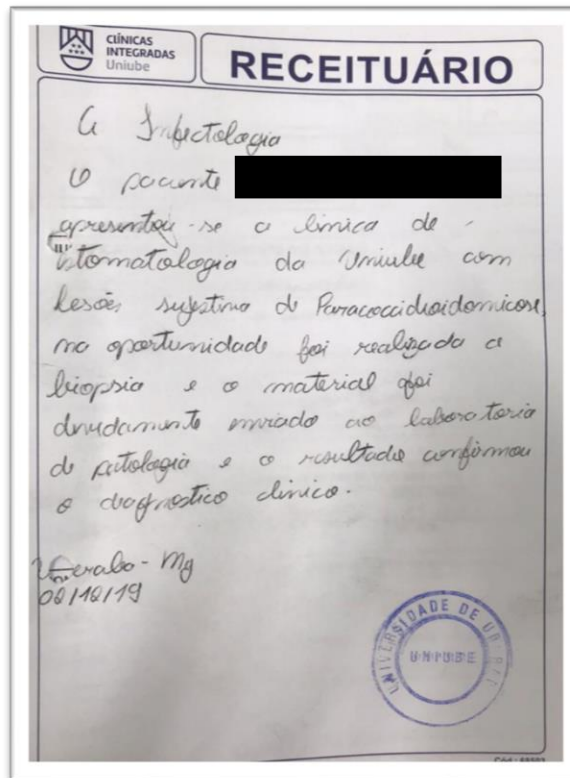 CLÍNICAS
INTEGRADAS
Uniube
RECEITUÁRIO
A Infectologia
O paciente
apresentou-se a clinica de
Estomatologia da Uniube com
lesões sujestiva de Paracoccidioidomicose,
na oportunidade foi realizada a
biopsia e o material foi
devidamente enviado ao laboratorio
de patologia e o resultado confirmou
o diagnostico clinico.
Uberaba - Mg
UNIVERSIDADE DE
UNIUBE